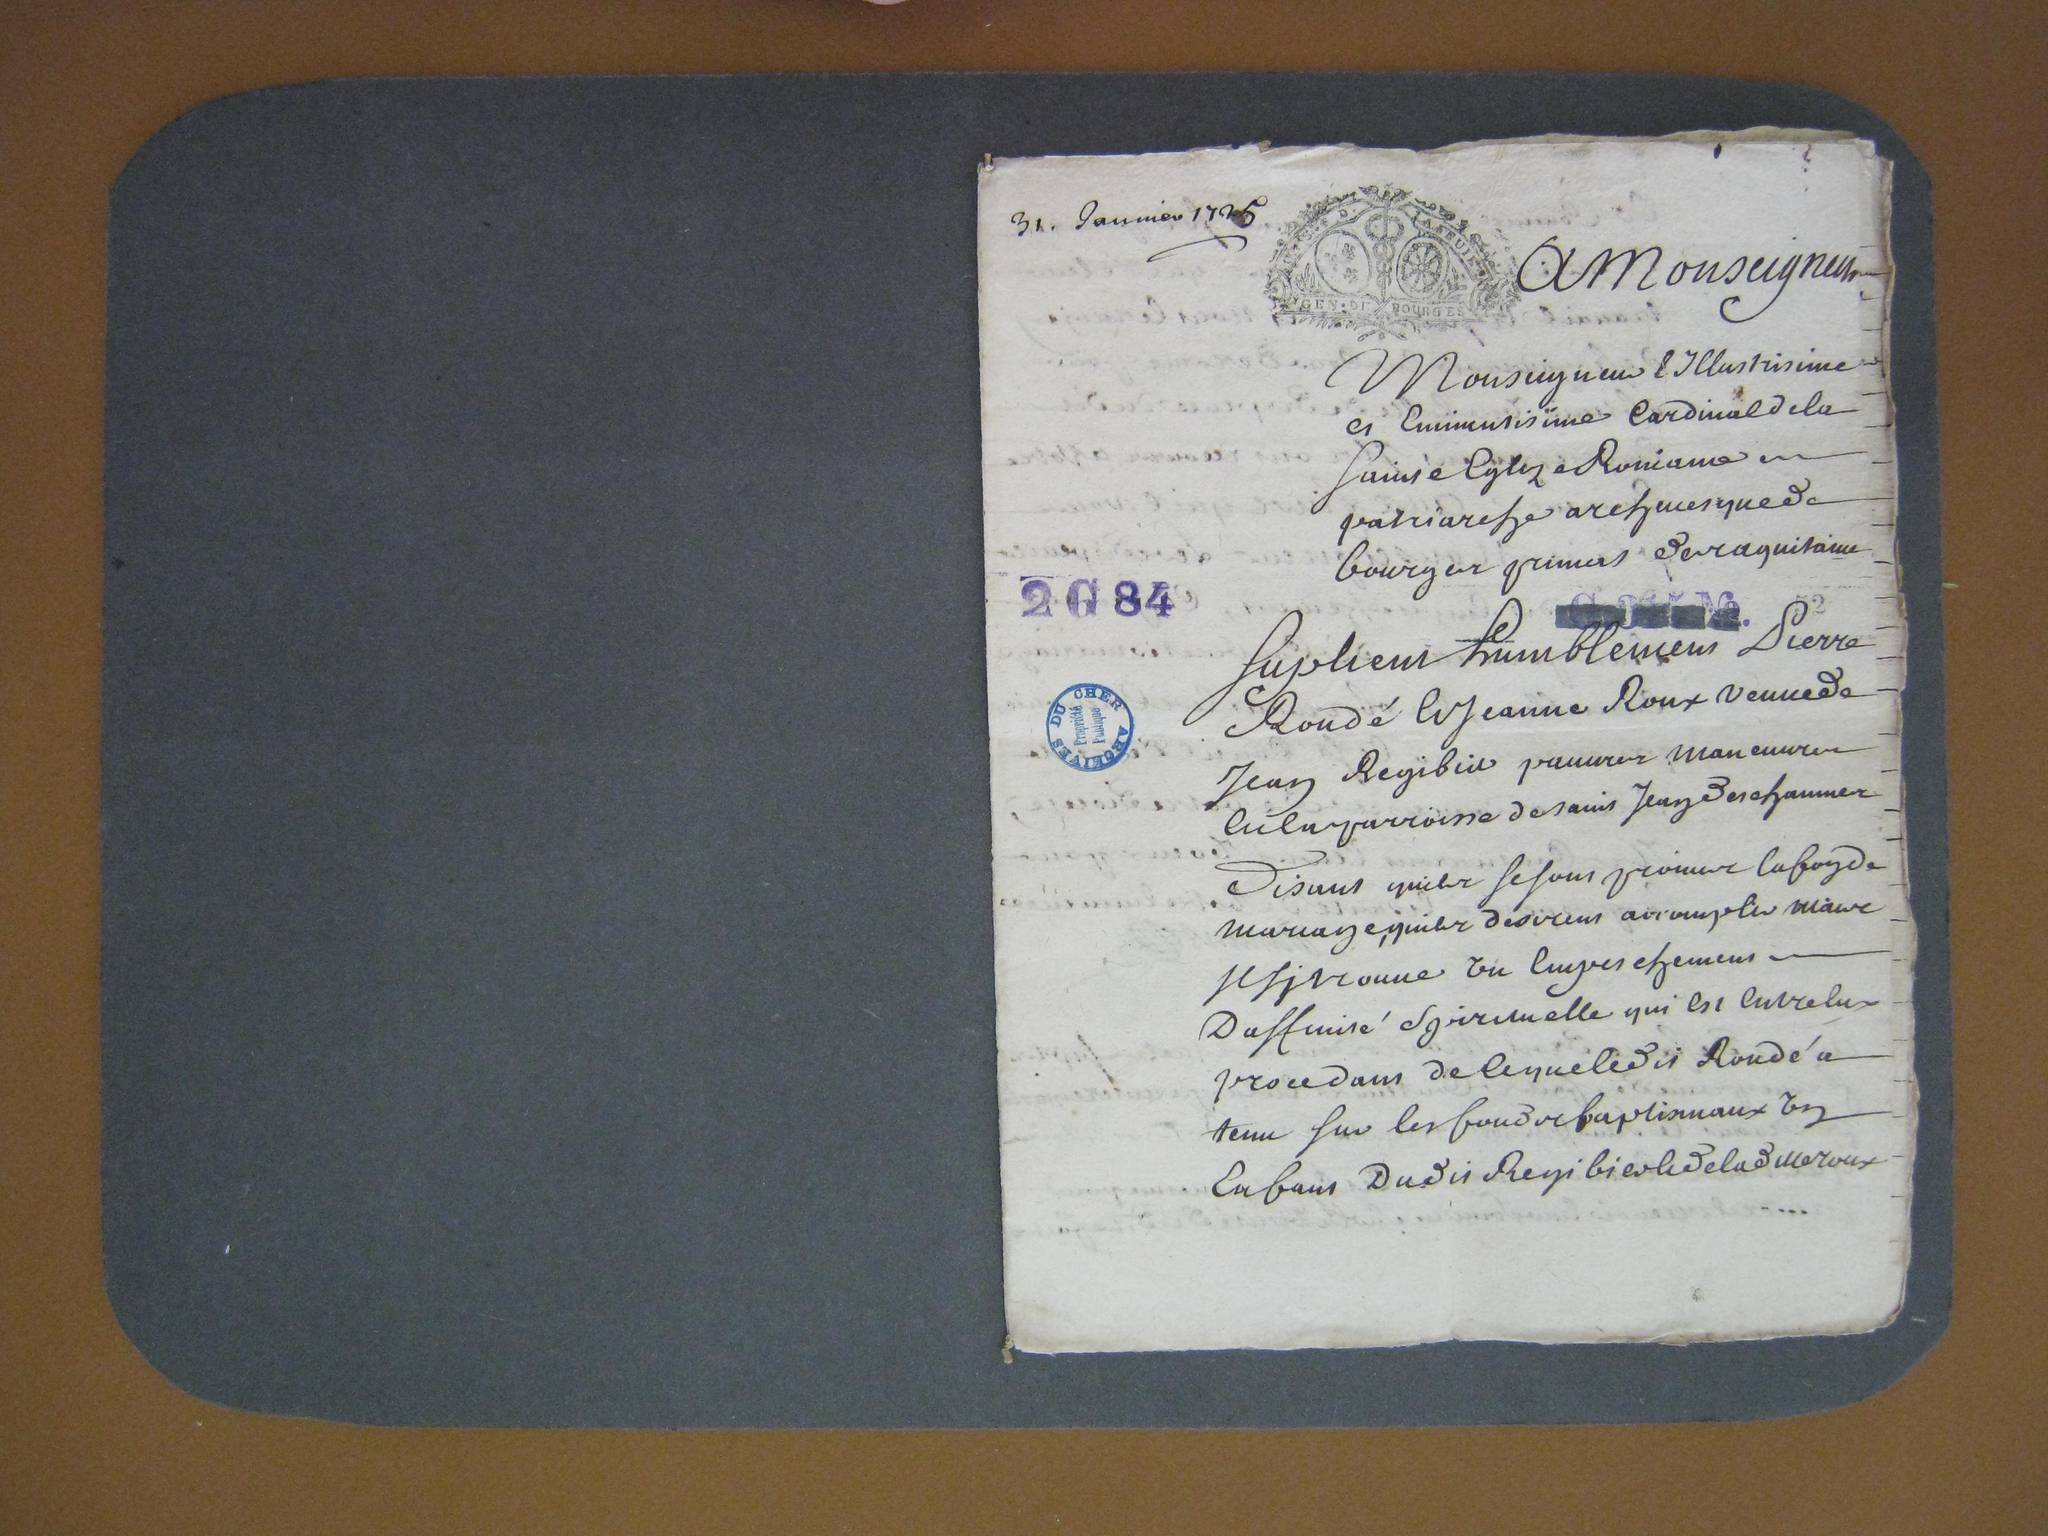 31. Januier 1725
GEN. DE BOURGES
A Monseigneur
Monseigneur l'Illustrisime
et Eminentisime Cardinal de la
sainte Eglize Romaine
patriarche archeuesque de
bourges primat des aquitaine
2 G 84
52
Suplient humblement Pierre
Rondé et Jeanne Roux veuue de
ARCHIVES DU CHER
Propriété
Publique
Jean Regibier pauures maneuures
en la parroisse de saint Jean des chaumes
Disant quils se sont promis la foy de
mariage, quils desirent accomplir mais
il sy trouue un empeschement
Daffinité spirituelle qui est entre eux
procedant de lequel ledit Rondé a
tenu sur les fonds baptismaux un
Enfant Dudit Regibier et de lad. Roux